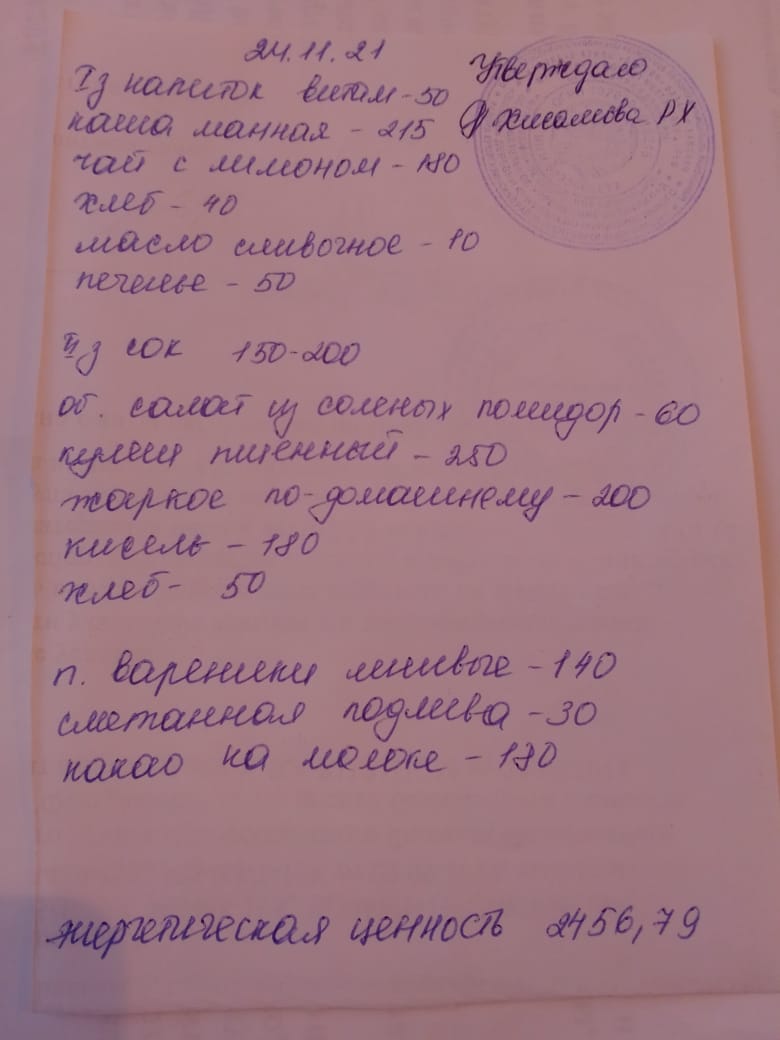 24.11.21
Утверждаю
Iз напиток витам - 50
каша манная - 215
Хисамева РХ
чай с лимоном - 180
хлеб - 40
масло сливочное - 10
печенье - 50
IIз сок 150-200
об. салат из соленых помидор - 60
кулеш пшенный - 250
жаркое по-домашнему - 200
кисель - 180
хлеб - 50
п. вареники ленивые - 140
сметанная подлива - 30
какао на молоке - 180
энергетическая ценность 2456,79